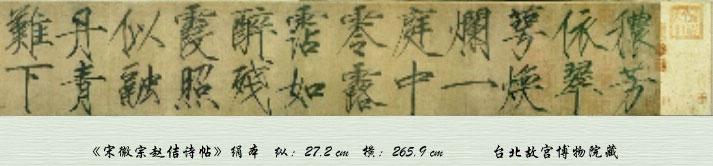 穠芳
依翠
萼煥
爛一
庭中
零露
霑如
醉殘
霞照
似融
丹青
難下
《宋徽宗赵佶诗帖》绢本 纵：27.2 cm 横：265.9 cm 台北故宫博物院藏